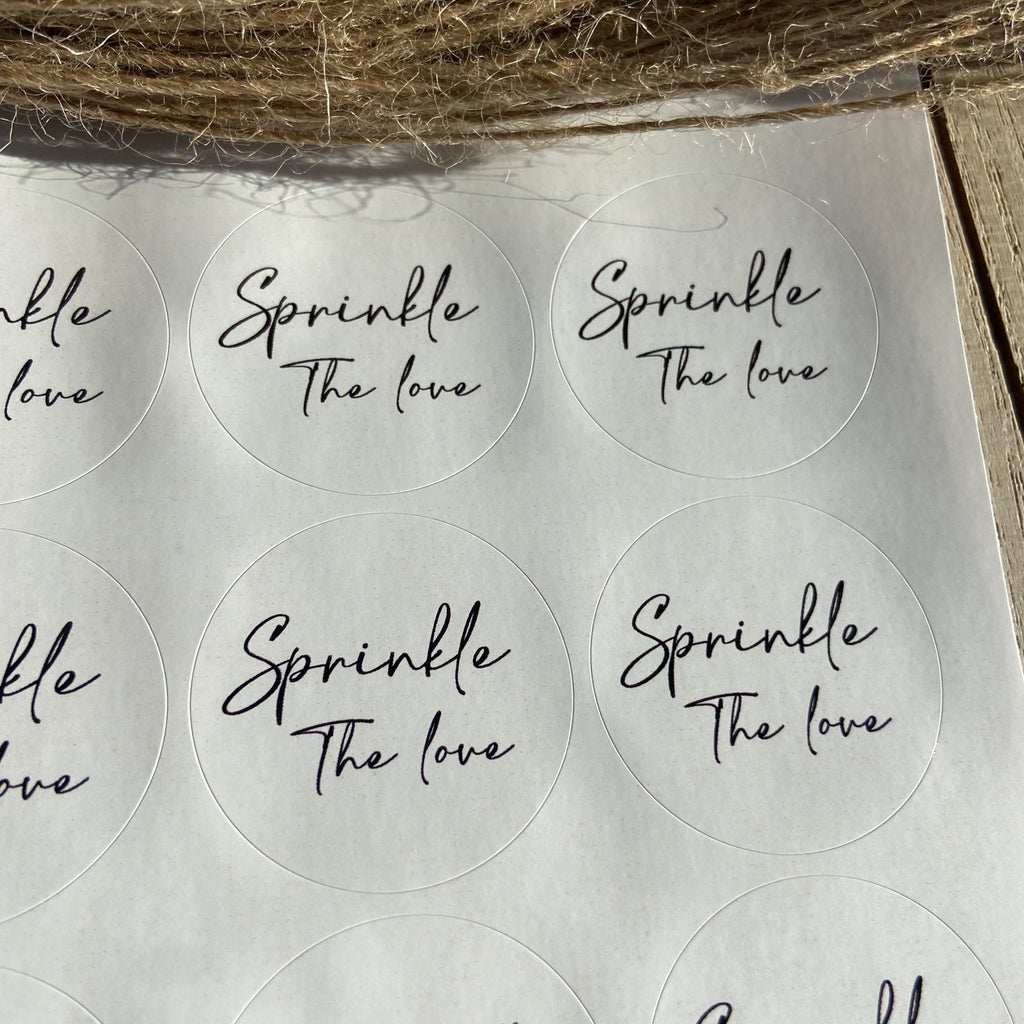 nkle
love
Sprinkle
The love
Sprinkle
The love
kle
ove
Sprinkle
The love
Sprinkle
The love